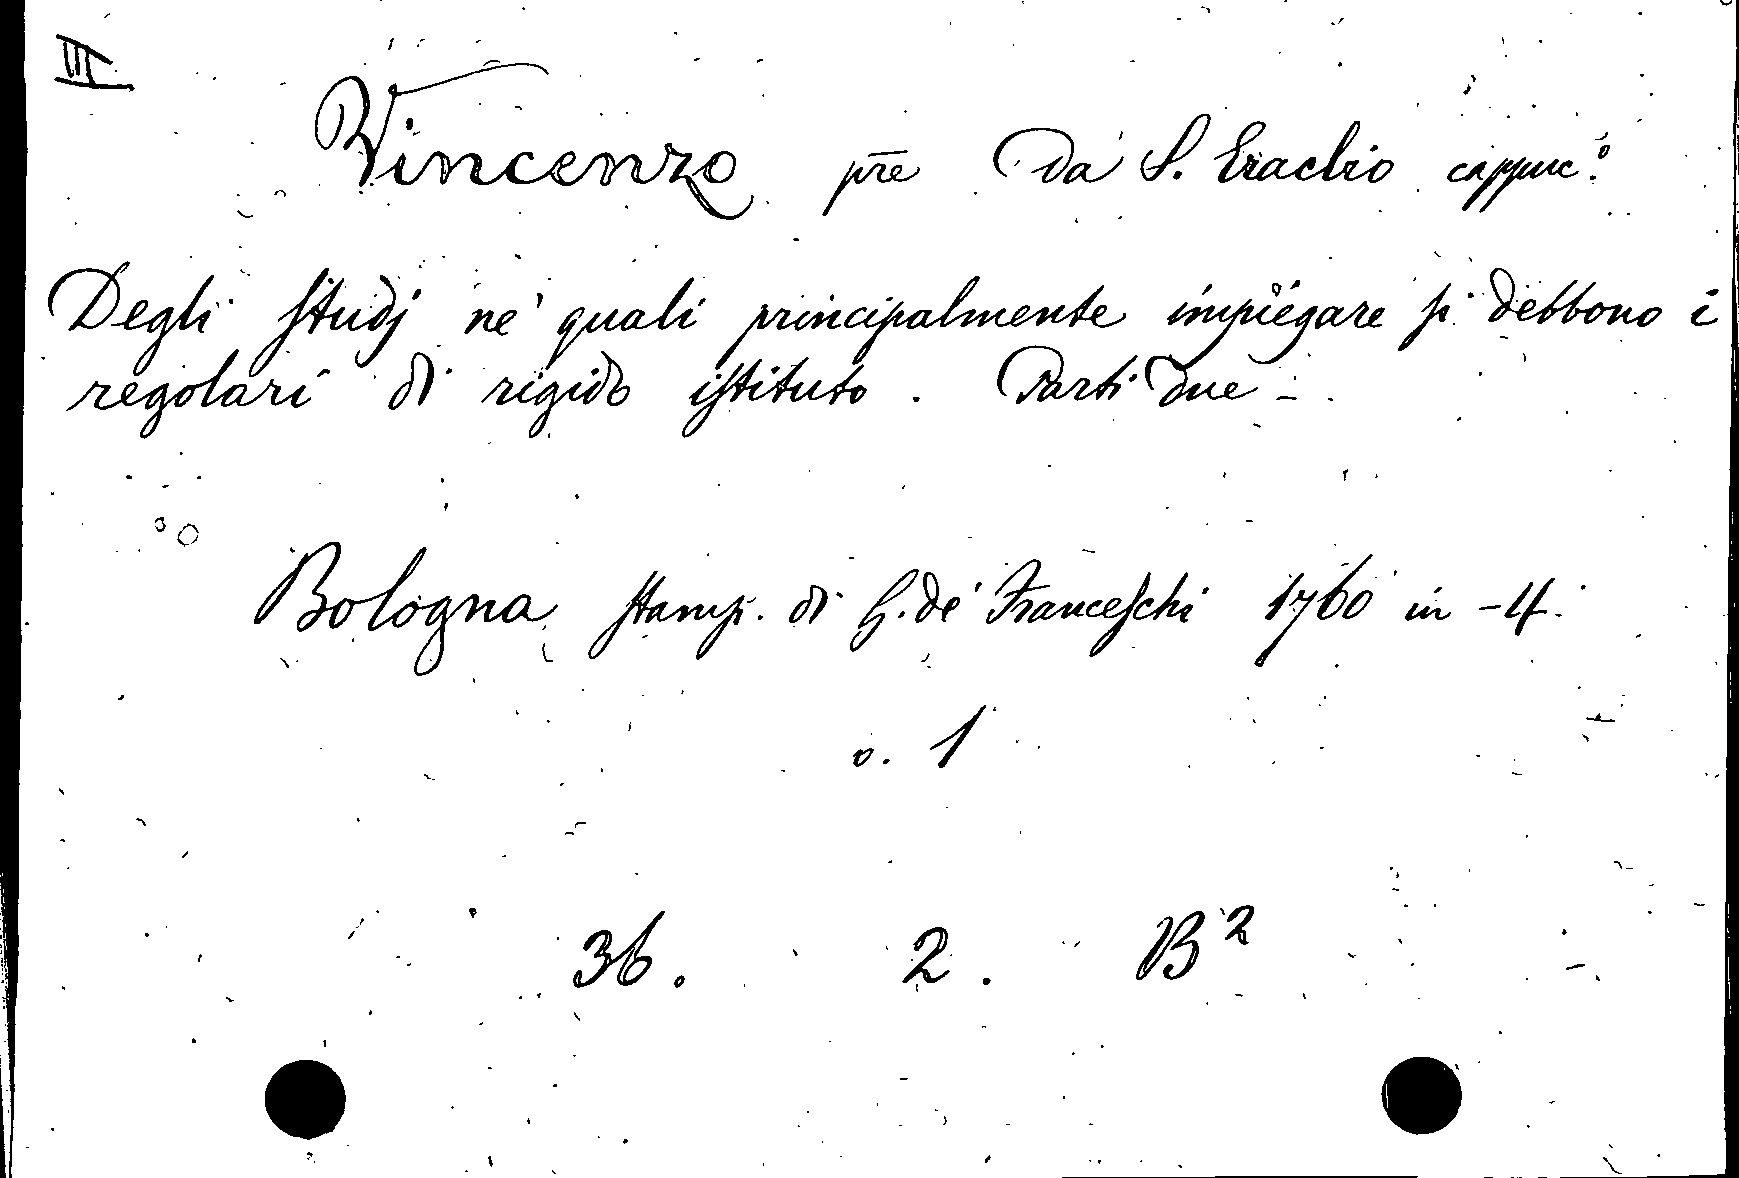 III
Vincenzo pre Da S. Eraclio cappuc.º
Degli studj ne' quali principalmente impiegare si debbono i
regolari di rigido istituto. Parti Due -
Bologna stamp. di G. de' Franceschi 1760 in -4.
v. 1
36. 2. B²